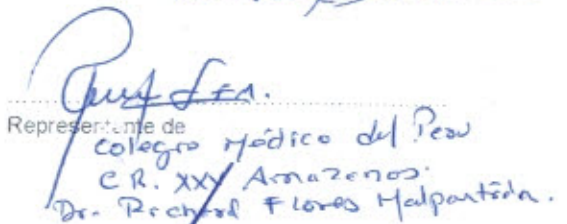 Representante de
Colegio Médico del Perú
C.R. XXV Amazonas.
Dr. Richard Flores Malpartida.